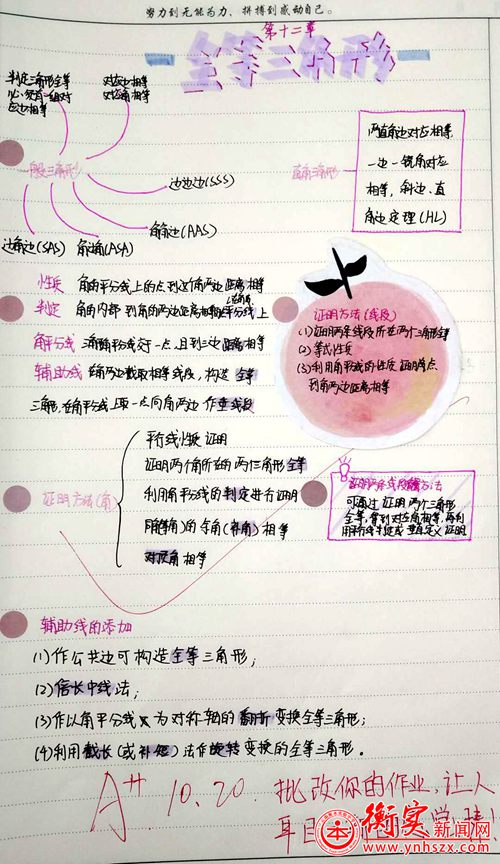 努力到无能为力，拼搏到感动自己。
第十二章
全等三角形
判定三角形全等
心、须有一组对
应边相等
对应边相等
对应角相等
一般三角形
边边边(SSS)
角角边(AAS)
边角边(SAS)
角边角(ASA)
直角三角形
两直角边对应相等
一边一锐角对应
相等，斜边、直
角边定理(HL)
性质 角的平分线上的点到这个角两边距离相等
判定 角的内部到角的两边距离相等
角平分线 三角形角平分线交于一点，且到三边距离相等
辅助线 在角两边截取相等线段，构造全等
三角形，在角平分线上取一点向角两边作垂线段
证明方法(线段)
(1)证明两条线段所在两个三角形全等
(2)等式性质
(3)利用角平分线的性质证明角点
到角两边距离相等
证明方法(角)
平行线性质证明
证明两个角所在的两个三角形全等
利用角平分线的判定进行证明
同角(等角)的余角(补角)相等
对顶角相等
可通过证明两个三角形
全等，得到对应角相等，再利
用平行线判定或垂直定义证明
辅助线的添加
(1)作公共边可构造全等三角形；
(2)倍长中线法；
(3)作以角平分线为对称轴的翻折变换全等三角形；
(4)利用截长(或补短)法作旋转变换的全等三角形。
A++ 10.20. 批改你的作业，让人
耳目
衡实
www.ynhszx.com